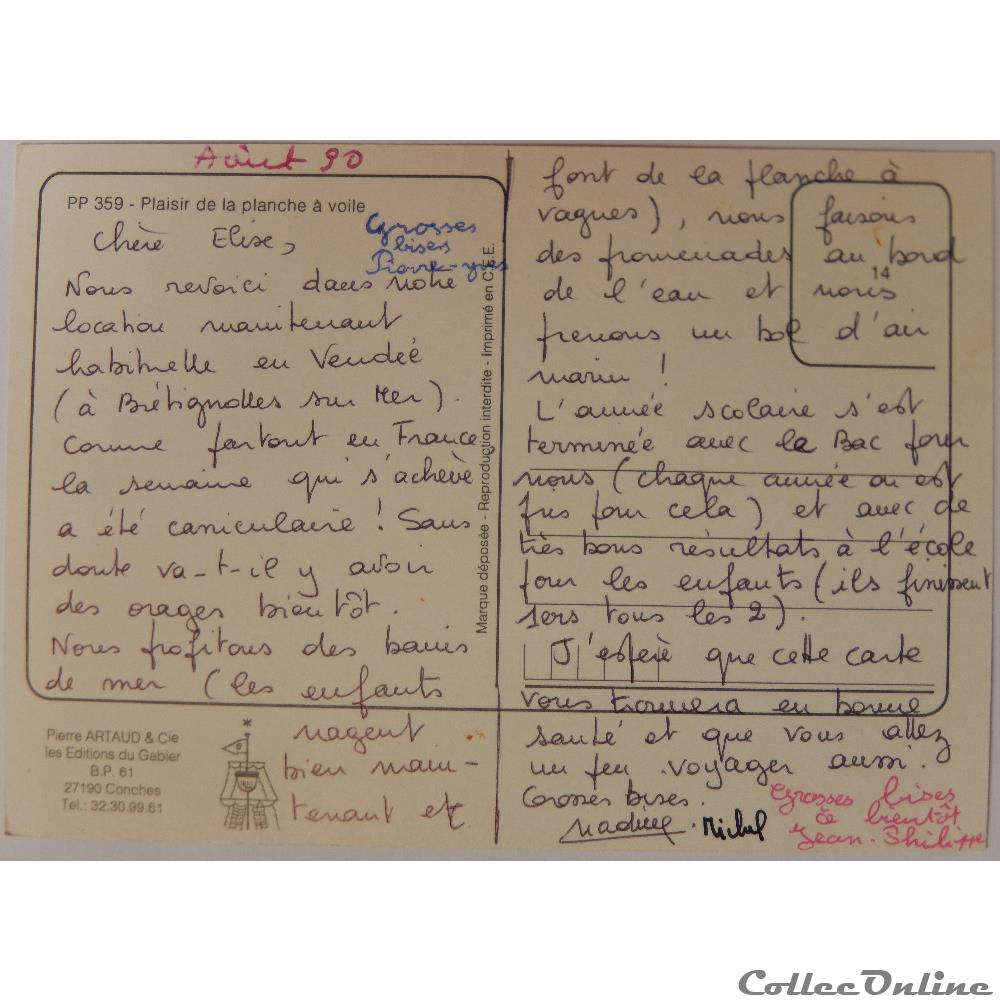 Août 90
PP 359 - Plaisir de la planche à voile
Chère Elise,
Grosses
bises
Pierre-yves
Nous revoici dans notre
location maintenant
habituelle en Vendée
(à Brétignolles sur Mer).
Comme partout en France
la semaine qui s'achève
a été caniculaire ! Sans
doute va-t-il y avoir
des orages bientôt.
Nous profitons des bains
de mer (les enfants
nagent
bien main-
tenant et
Marque déposée - Reproduction interdite - Imprimé en C.E.E.
Pierre ARTAUD & Cie
les Editions du Gabier
B.P. 61
27190 Conches
Tel.: 32.30.99.61
14
font de la planche à
vagues), nous faisons
des promenades au bord
de l'eau et nous
prenons un bol d'air
marin !
L'année scolaire s'est
terminée avec le Bac pour
nous (chaque année on est
pris pour cela) et avec de
très bons résultats à l'école
pour les enfants (ils finissent
1ers tous les 2).
J'espère que cette carte
vous trouvera en bonne
santé et que vous allez
un peu voyager aussi.
Grosses bises.
Nadine . Michel
Grosses bises
à bientôt
Jean-Philippe
CollecOnline